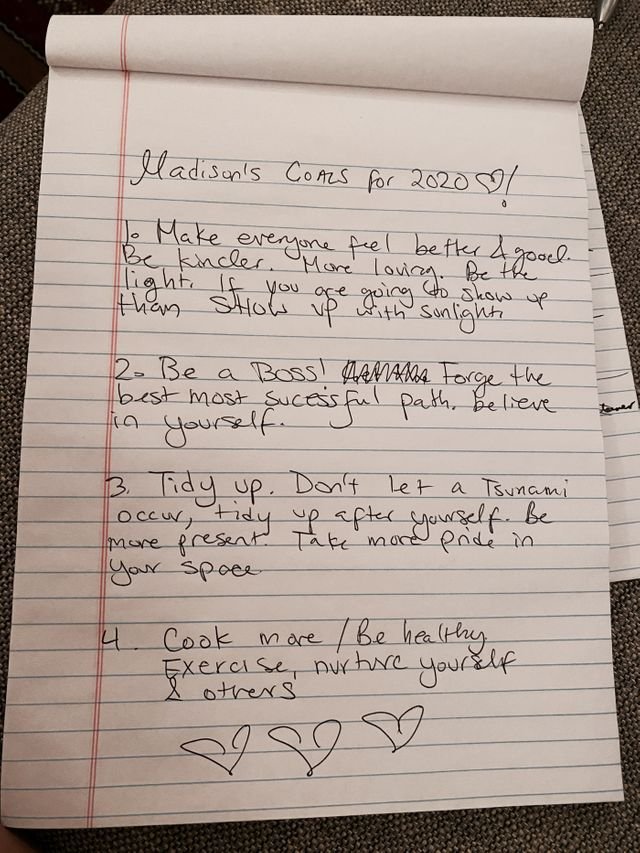 Madison's GOALS for 2020 ♡!
1. Make everyone feel better & good.
Be kinder. More loving. Be the
light. If you are going to show up
than SHOW UP with sunlight.
2. Be a Boss! Forge the
best most sucessful path. believe
in yourself.
3. Tidy up. Don't let a Tsunami
occur, tidy up after yourself. Be
more present. Take more pride in
your space
4. Cook more / Be healthy
Exercise, nurture yourself
& others